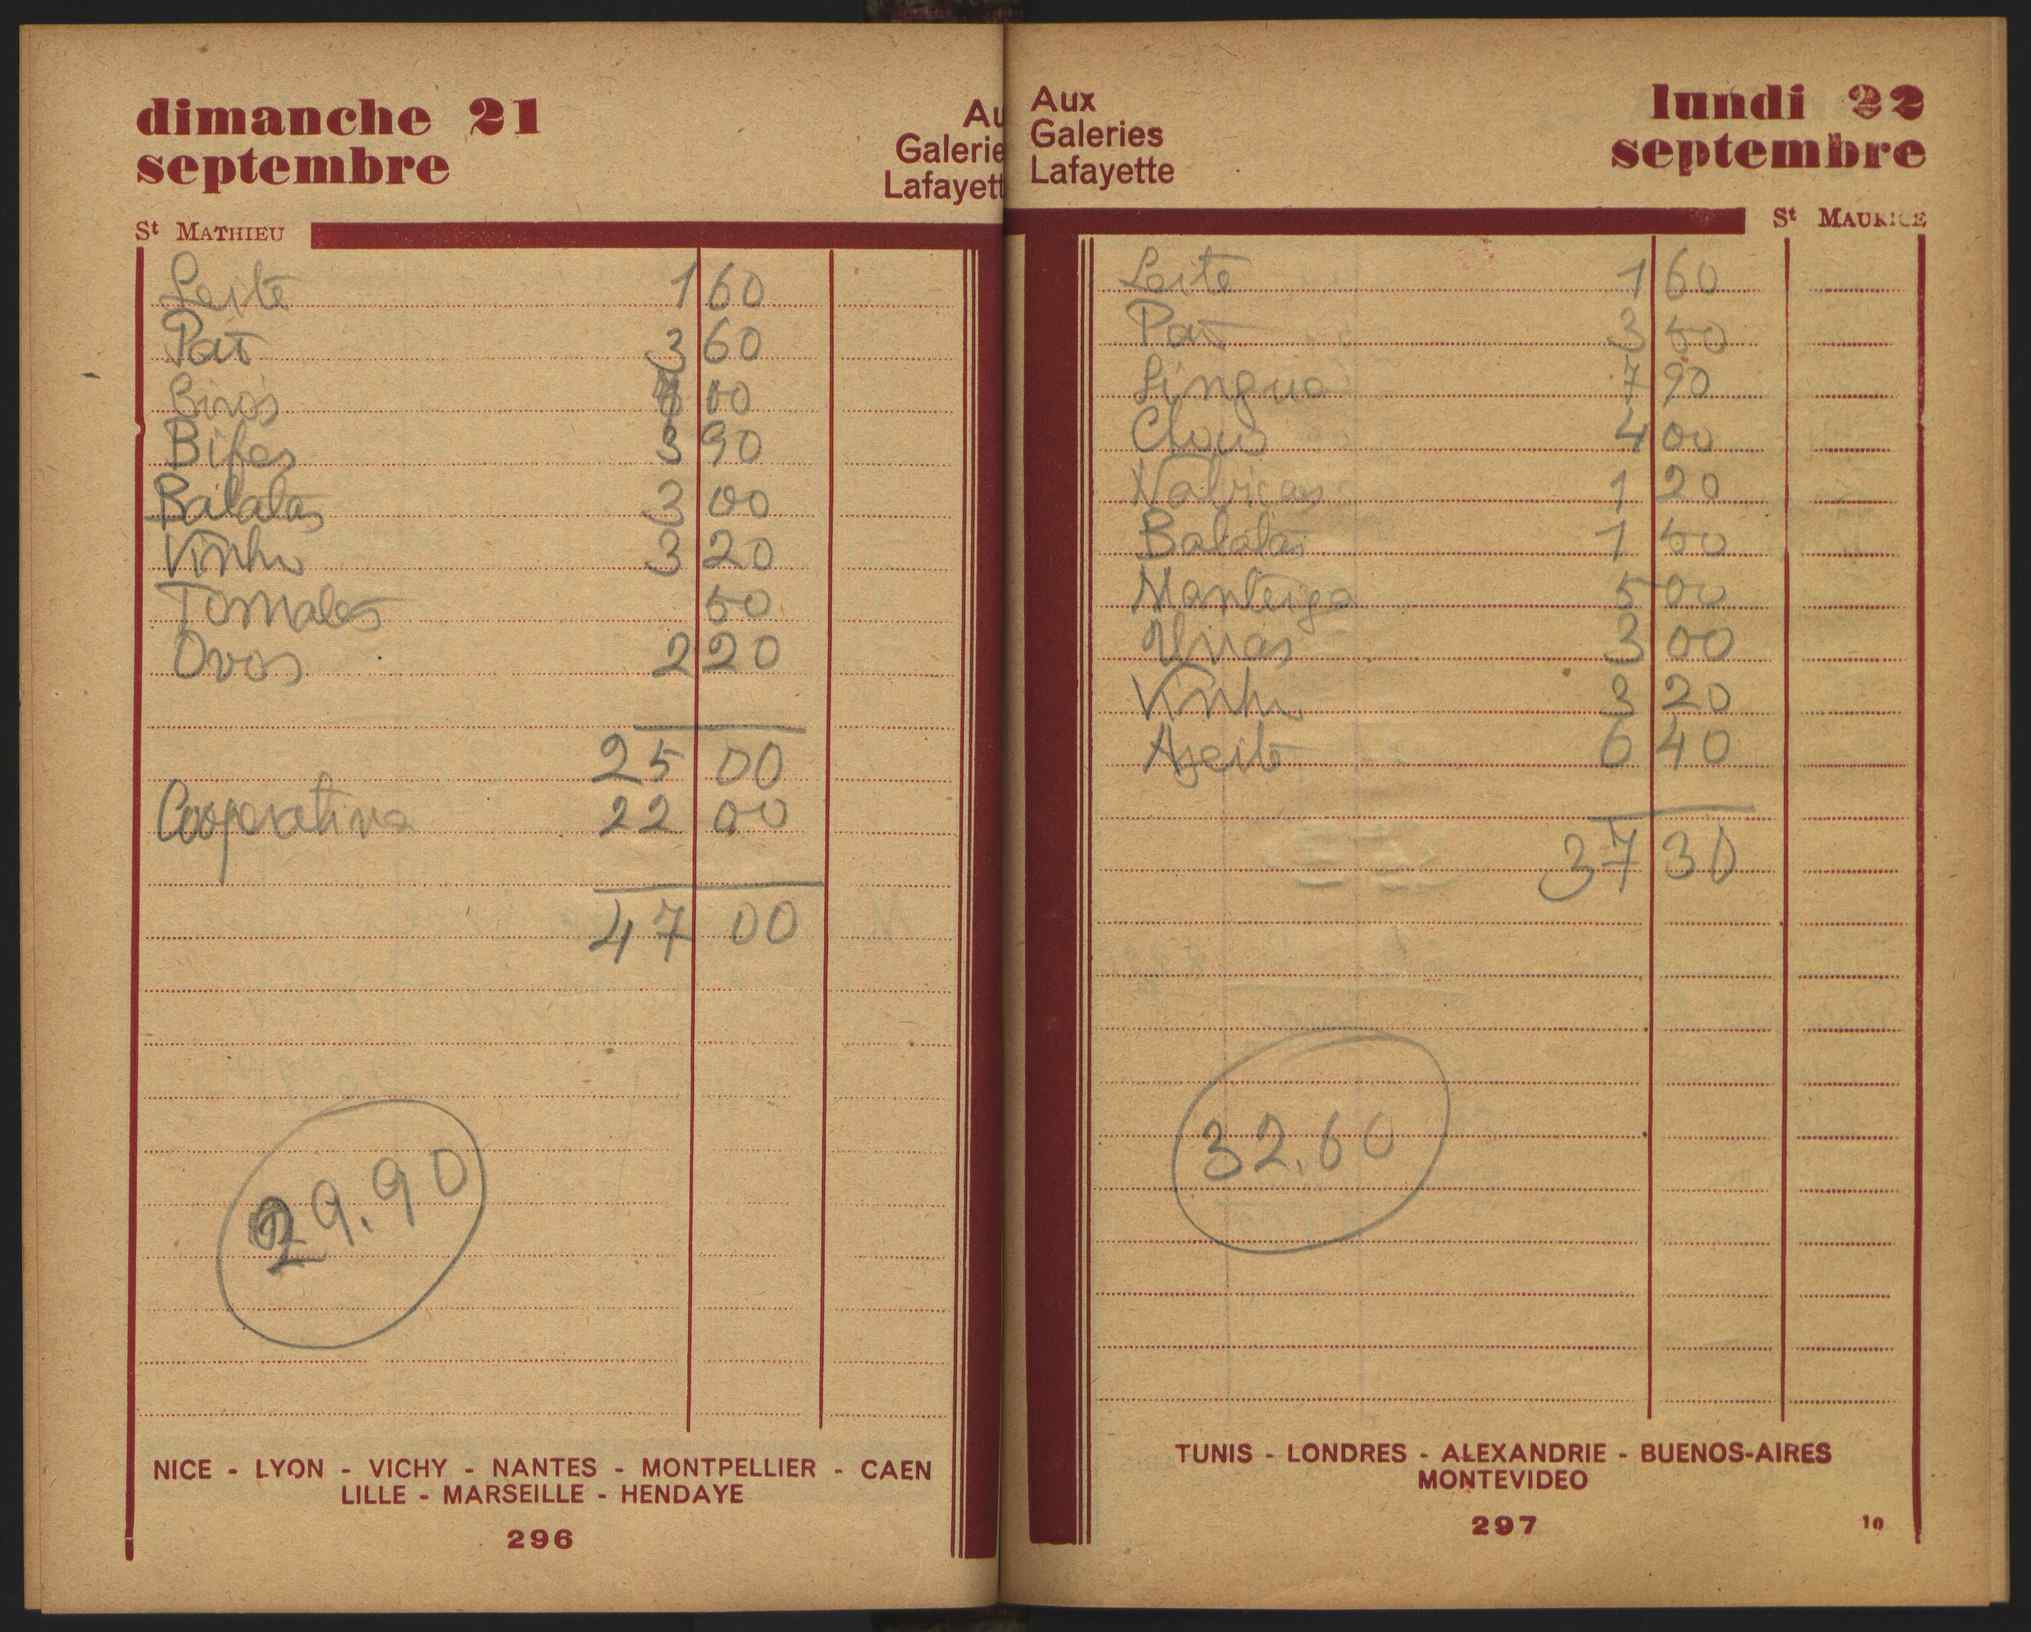 dimanche 21
septembre
Au
Galerie
Lafayett
St MATHIEU
Leite 1 60
Pão 3 60
7 00
Bifes 3 90
Batatas 3 00
Vinho 3 20
Tomates 50
Ovos 2 20
25 00
Cooperativa 22 00
47 00
29.90
NICE - LYON - VICHY - NANTES - MONTPELLIER - CAEN
LILLE - MARSEILLE - HENDAYE
296
Aux
Galeries
Lafayette
lundi 22
septembre
St MAURICE
Leite 1 60
Pão 3 50
Lingua 7 90
4 00
Nabiças 1 20
Batatas 1 50
Manteiga 5 00
Uvas 3 00
Vinho 3 20
Azeite 6 40
37 30
32.60
TUNIS - LONDRES - ALEXANDRIE - BUENOS-AIRES
MONTEVIDEO
297
10